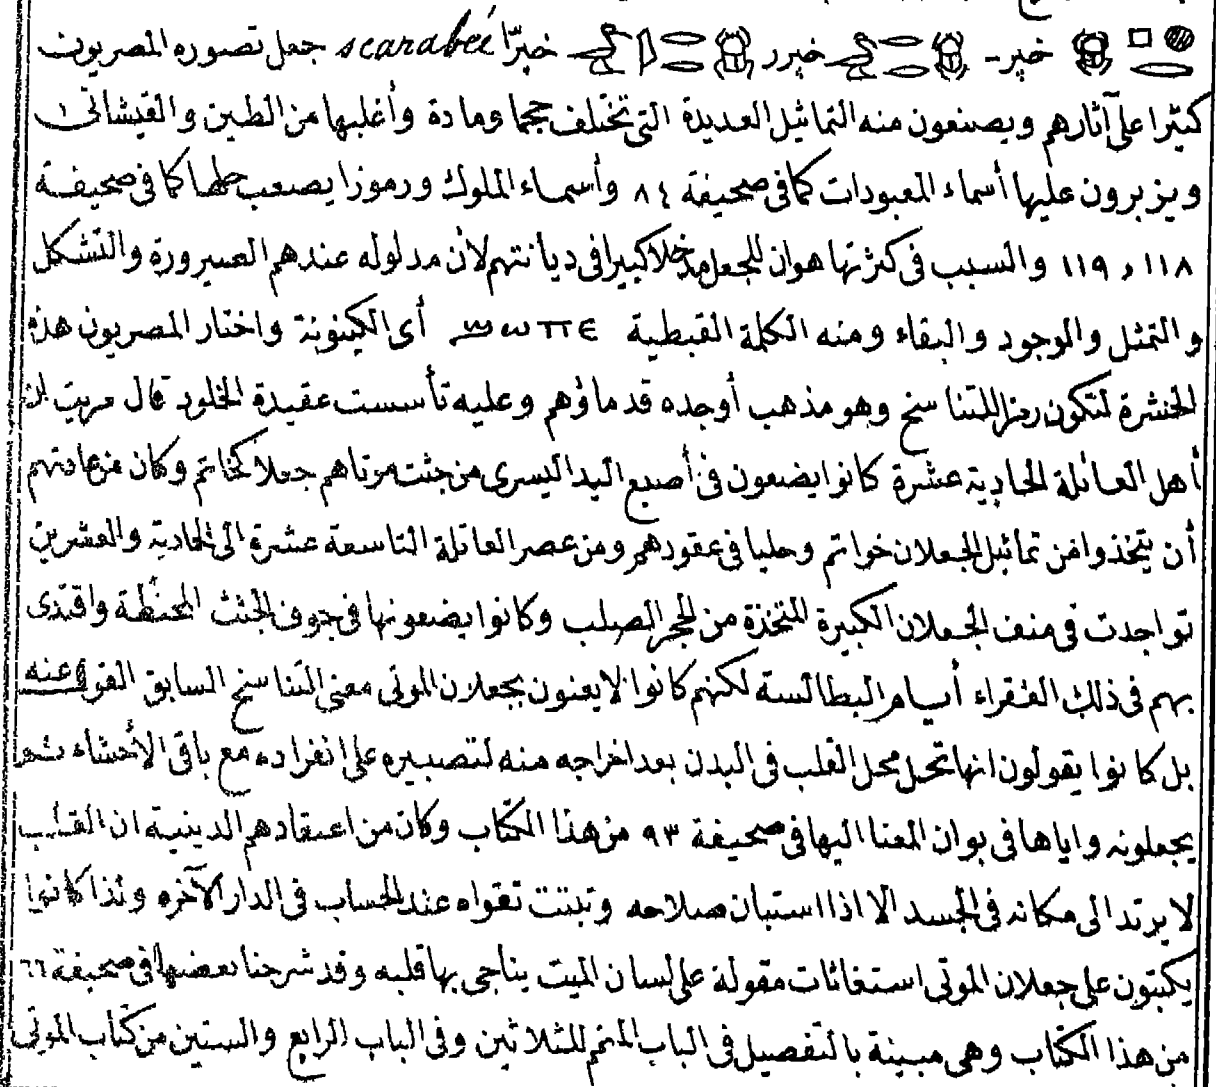 خپر - خپرر خپرّا scarabée جعل تصوره المصريون
كثيرا على آثارهم ويصنعون منه التماثيل العديدة التى تختلف حجما ومادة وأغلبها من الطين والقيشانى
ويزبرون عليها أسماء المعبودات كما فى صحيفة ٨٤ وأسماء الملوك ورموزا يصعب حلها كما فى صحيفة
١١٨ و ١١٩ والسبب فى كثرتها هو ان للجعل مدخلا كبيرا فى ديانتهم لأن مدلوله عندهم الصيرورة والتشكل
والتمثل والوجود والبقاء ومنه الكلمة القبطية ϣⲱⲡⲉ أى الكينونة واختار المصريون هذه
الحشرة لتكون رمزا للتناسخ وهو مذهب أوجده قدماؤهم وعليه تأسست عقيدة الخلود قال مريت ان
أهل العائلة الحادية عشرة كانوا يضعون فى أصبع اليد اليسرى من جثث موتاهم جعلا كخاتم وكان من عادتهم
أن يتخذوا من تماثيل الجعلان خواتم وحليا فى عقودهم ومن عصر العائلة التاسعة عشرة الى الحادية والعشرين
تواجدت فى منف الجعلان الكبيرة المتخذة من الحجر الصلب وكانوا يضعونها فى جوف الجثث المحنطة واقتدى
بهم فى ذلك الفقراء أيام البطالسة لكنهم كانوا لا يعنون بجعلان الموتى معنى التناسخ السابق القول عنه
بل كانوا يقولون انها تحل محل القلب فى البدن بعد اخراجه منه لتصبيره على انفراده مع باقى الأحشاء ثم
يجعلونه واياها فى بوان المعنا اليها فى صحيفة ٩٣ من هذا الكتاب وكان من اعتقادهم الدينية ان القلب
لا يرتد الى مكانه فى الجسد الا اذا استبان صلاحه وثبتت تقواه عند الحساب فى الدار الآخره ولذا كانوا
يكتبون على جعلان الموتى استغاثات مقولة على لسان الميت يناجى بها قلبه وقد شرحنا بعضها فى صحيفة ٦٦
من هذا الكتاب وهى مبينة بالتفصيل فى الباب المتمم للثلاثين وفى الباب الرابع والستين من كتاب الموتى